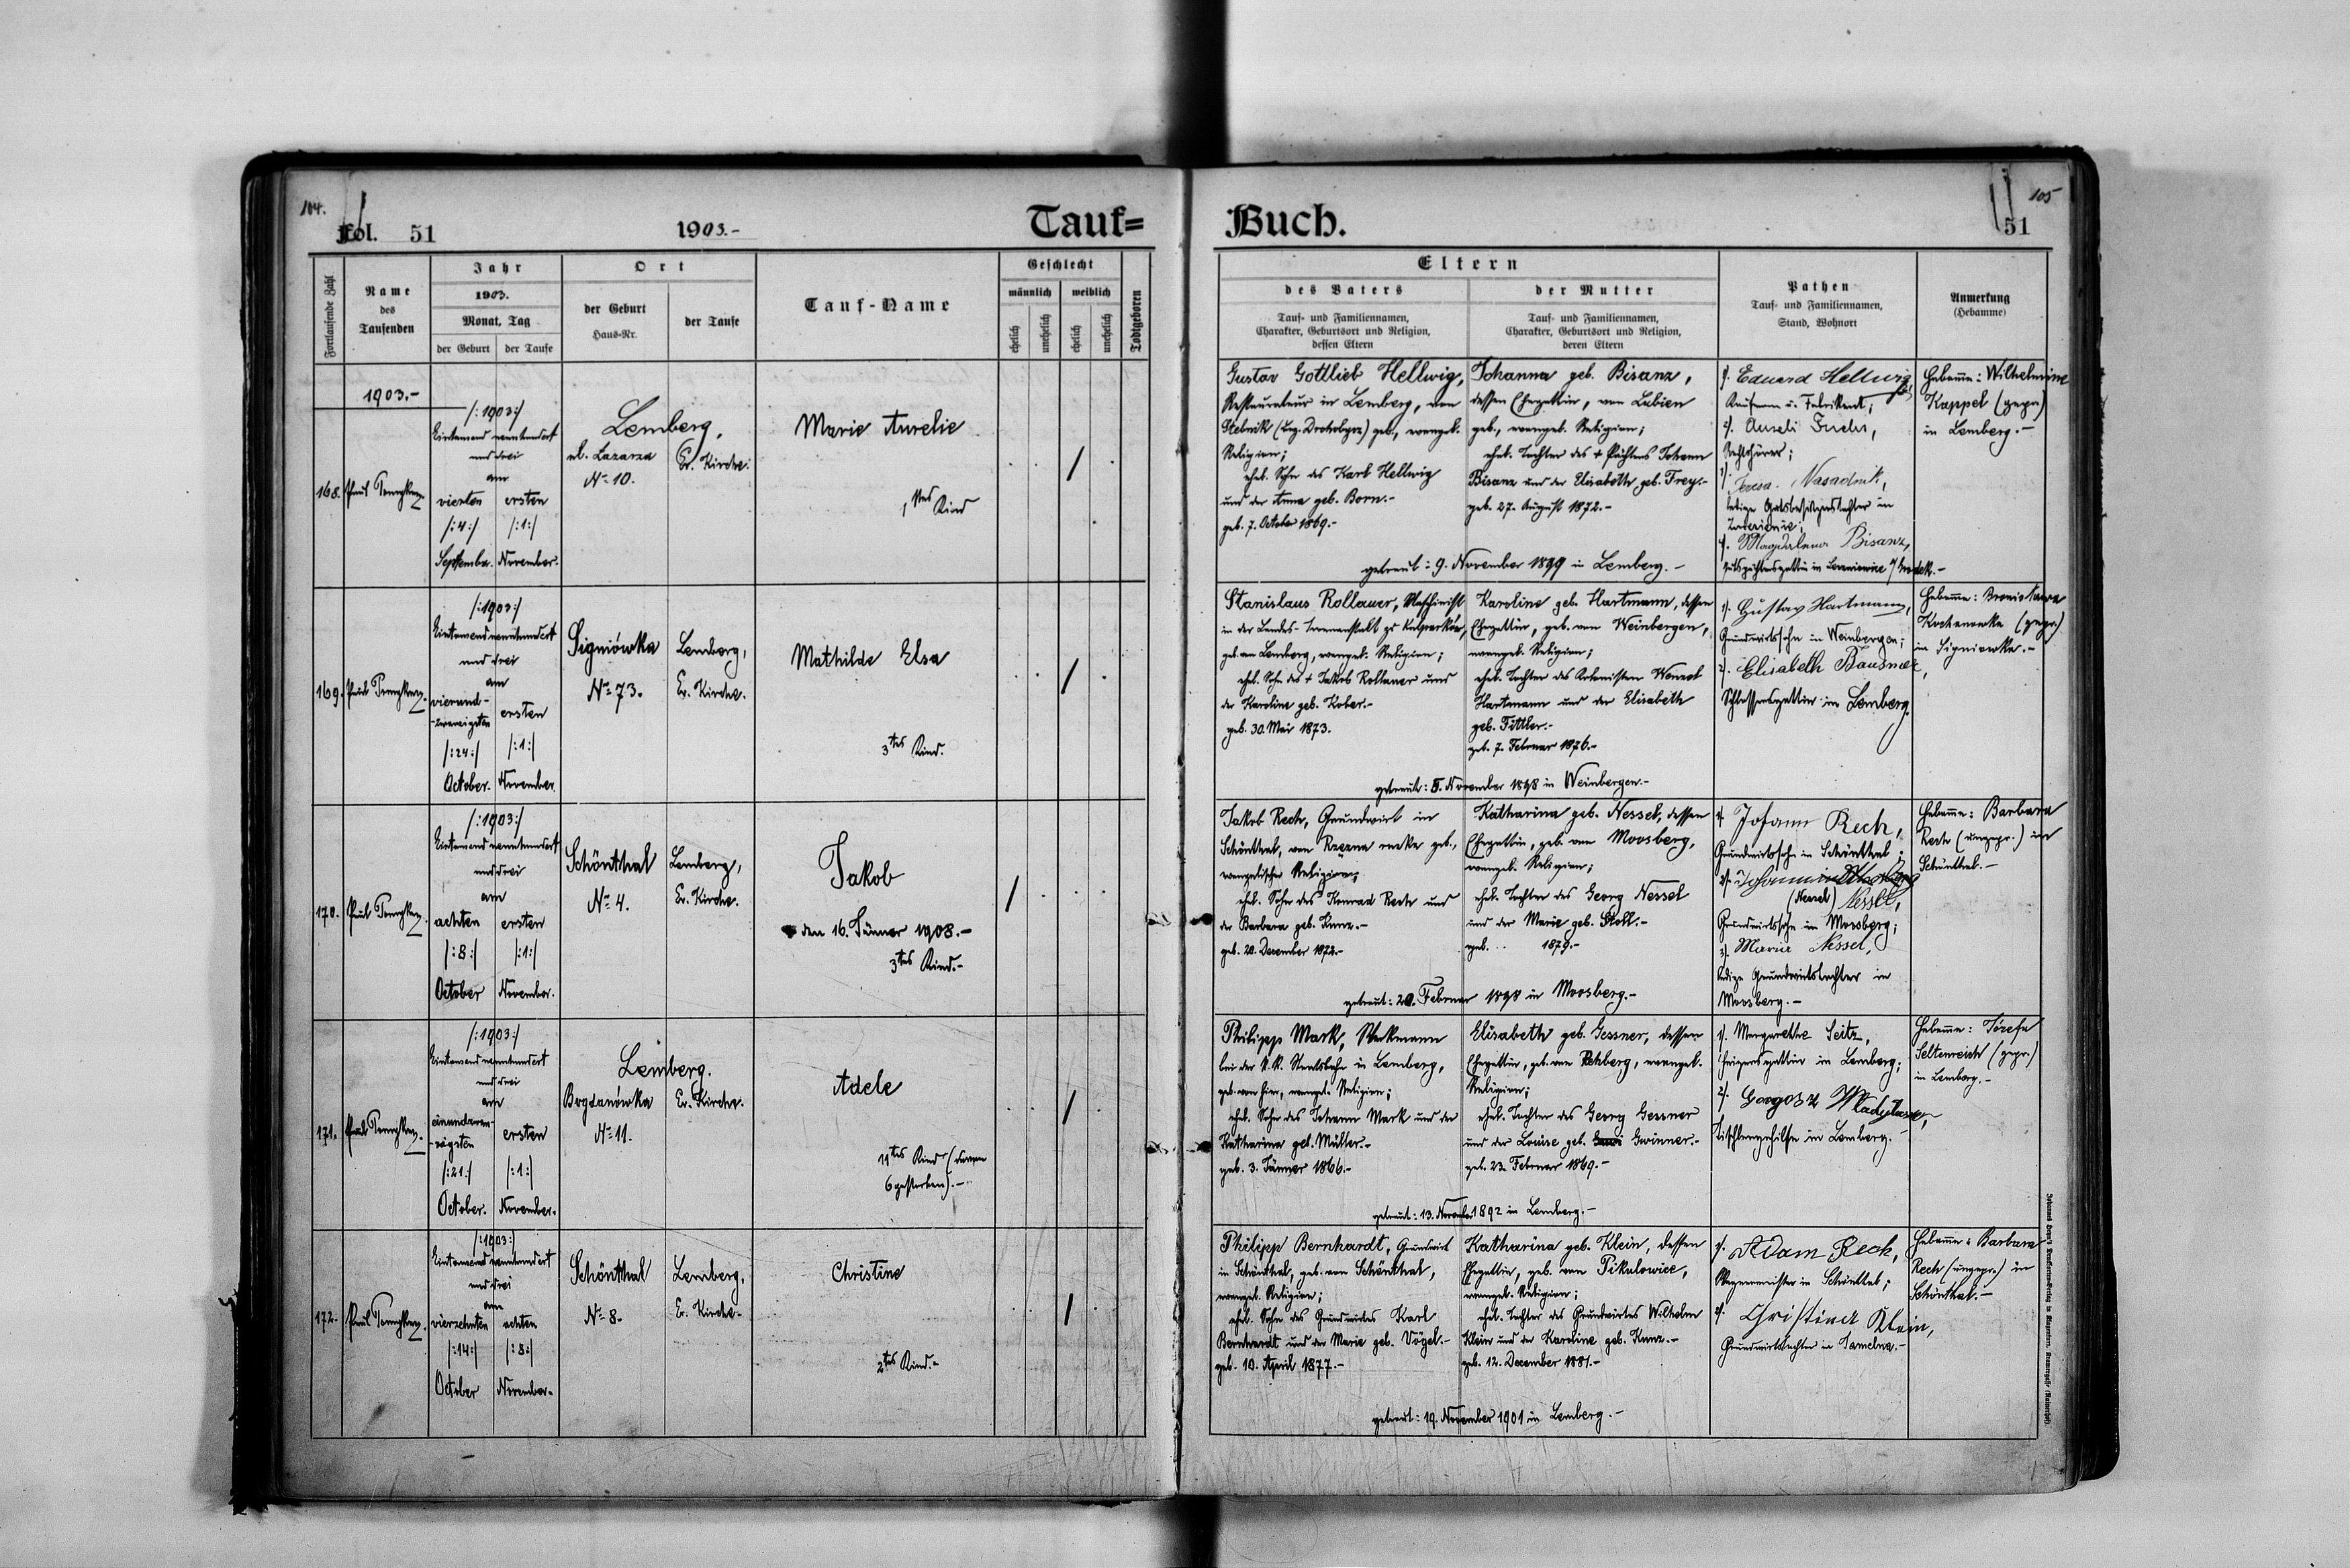 104.
Fol. 51
1903.-
Tauf=
Fortlaufende Zahl
Name
des
Taufenden
Jahr
1903.
Monat, Tag
der Geburt
der Taufe
Ort
der Geburt
Haus-Nr.
der Taufe
Tauf-Name
Geschlecht
männlich
weiblich
ehelich
unehelich
ehelich
unehelich
Todtgeboren
1903.-
168.
Paul
/:1903:/
Eintausend neunhundert
und drei
am
vierten
/:4:/
September.
ersten
/:1:/
November.
Lemberg,
ul. Lazarza
Nº 10.
Ev. Kirche.
Marie Aurelie
1tes Kind
169.
Paul
/:1903:/
Eintausend neunhundert
und drei
am
vierund-
-zwanzigsten
/:24:/
October.
ersten
/:1:/
November.
Signiówka
Nº 73.
Lemberg,
Ev. Kirche.
Mathilde Elsa
3tes Kind.
170.
Paul
/:1903:/
Eintausend neunhundert
und drei
am
achten
/:8:/
October
ersten
/:1:/
November.
Schönthal
Nº 4.
Lemberg,
Ev. Kirche.
Jakob
den 16. Jänner 1908.-
3tes Kind.-
171.
Paul
/:1903:/
Eintausend neunhundert
und drei
am
einundzwan-
-zigsten
/:21:/
October.
ersten
/:1:/
November.
Lemberg.
Bogdanówka
Nº 11.
Ev. Kirche.
Adele
11tes Kind (davon
6 gestorben).-
172.
Paul
/:1903:/
Eintausend neunhundert
und drei
am
vierzehnten
/:14:/
October
achten
/:8:/
November.
Schönthal
Nº 8.
Lemberg,
Ev. Kirche.
Christine
2tes Kind.-
105
Buch.
51
Eltern
des Vaters
Tauf- und Familiennamen,
Charakter, Geburtsort und Religion,
dessen Eltern
der Mutter
Tauf- und Familiennamen,
Charakter, Geburtsort und Religion,
deren Eltern
Pathen
Tauf- und Familiennamen,
Stand, Wohnort
Anmerkung
(Hebamme)
Gustav Gottlieb Hellwig,
Restaurateur in Lemberg, von
Stebnik geb., evangel.
Religion;
ehel. Sohn des Karl Hellwig
und der Anna geb. Born.-
geb. 7. October 1869.-
Johanna geb. Bisanz,
dessen Ehegattin, von Lubien
geb., evangel. Religion;
ehel. Tochter des + Pächters Johann
Bisanz und der Elisabeth geb. Frey.-
geb. 27. August 1872.-
getraut: 9. November 1899 in Lemberg.-
1. Eduard Hellwig,
Kaufmann u. Fabrikant;
2.
3.
ledige Gutsbesitzerstochter in
4. Magdalena Bisanz,
Hebamme: Wilhelmine
Kappel (gepr.)
in Lemberg.-
Stanislaus Rollauer, Maschinist
in der Landes-Irrenanstalt zu Kulparków,
geb. von Lemberg, evangel. Religion;
ehel. Sohn des + Jakob Rollauer und
der Karoline geb. Kober.-
geb. 30. Mai 1873.
Karoline geb. Hartmann, dessen
Ehegattin, geb. von Weinbergen,
evangel. Religion;
ehel. Tochter des Kolonisten Wenzel
Hartmann und der Elisabeth
geb. Fittler.-
geb. 7. Februar 1876.-
getraut: 5. November 1898 in Weinbergen.-
1. Gustav Hartmann,
Grundwirtssohn in Weinbergen;
2. Elisabeth
Schlossersgattin in Lemberg.
Hebamme: Bronislawa
Kochanowka (gepr.)
in Signiowka.-
Jakob Rech, Grundwirt in
Schönthal, von Rzęsna ruska geb.,
evangelischer Religion;
ehel. Sohn des Konrad Rech und
der Barbara geb. Kunz.-
geb. 20. December 1872.-
Katharina geb. Nessel, dessen
Ehegattin, geb. von Moosberg,
evangel. Religion;
ehel. Tochter des Georg Nessel
und der Marie geb. Stoll.-
geb. 1879.-
getraut: 20. Februar 1898 in Moosberg.-
1. Johann Rech,
Grundwirtssohn in Schönthal;
2.
(Nessel) Nessel,
Grundwirtssohn in Moosberg;
3. Maria Nessel,
ledige Grundwirtstochter in
Moosberg.-
Hebamme: Barbara
Rech (ungepr.) in
Schönthal.-
Philipp Mark,
bei der k.k. Staatsbahn in Lemberg,
geb. von hier, evangel. Religion;
ehel. Sohn des Johann Mark und der
Katharina geb. Müller.-
geb. 3. Jänner 1866.-
Elisabeth geb. Gessner, dessen
Ehegattin, geb. von Rehberg, evangel.
Religion;
ehel. Tochter des Georg Gessner
und der Louise geb. Gwinner.-
geb. 23. Februar 1869.-
getraut: 13. November 1892 in Lemberg.-
1. Margarethe Seitz,
in Lemberg;
2.
Tischlergehilfe in Lemberg.-
Hebamme: Józefa
Seltenreich (gepr.)
in Lemberg.-
Philipp Bernhardt, Grundwirt
in Schönthal, geb. von Schönthal,
evangel. Religion;
ehel. Sohn des Grundwirtes Karl
Bernhardt und der Marie geb. Vögel.-
geb. 10. April 1877.-
Katharina geb. Klein, dessen
Ehegattin, geb. von Pikulowice,
evangel. Religion;
ehel. Tochter des Grundwirtes Wilhelm
Klein und der Karoline geb. Kunz.-
geb. 12. December 1881.-
getraut: 19. November 1901 in Lemberg.-
1. Adam Rech,
Wagnermeister in Schönthal;
2. Christina Klein,
Grundwirtstochter in
Hebamme: Barbara
Rech (ungepr.) in
Schönthal.-